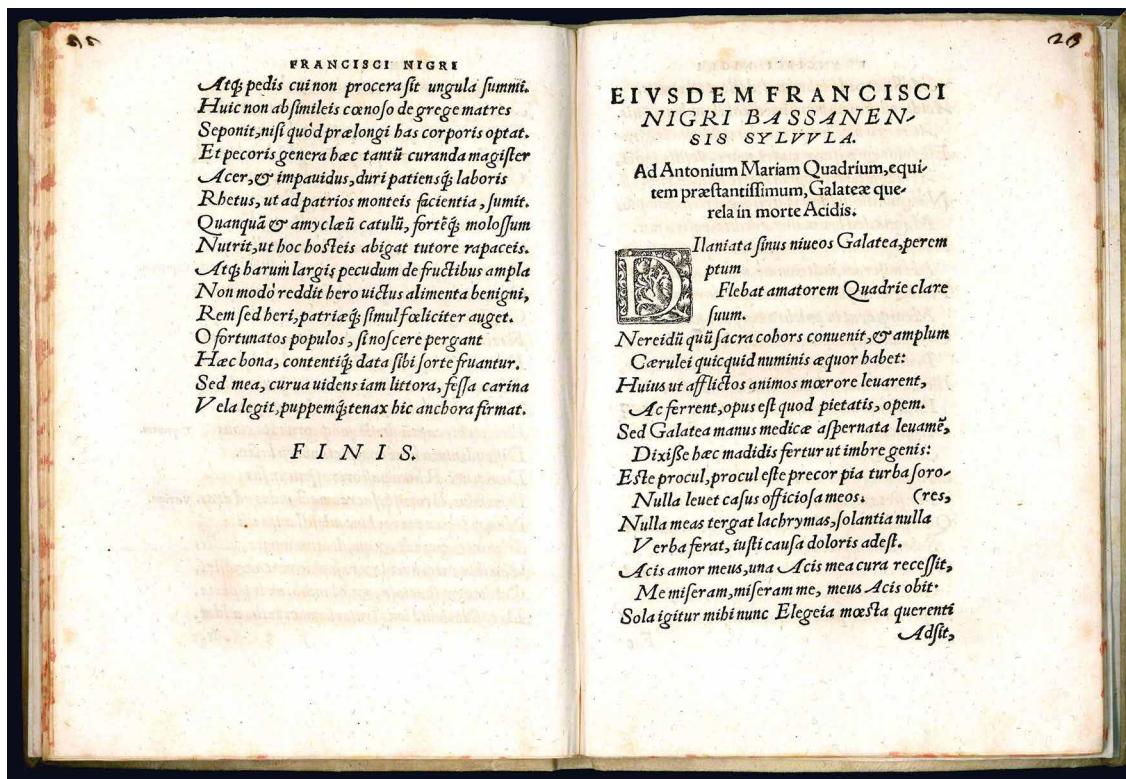 FRANCISCI NIGRI
Atq; pedis cui non procera sit ungula summi.
Huic non absimileis cœnoso de grege matres
Seponit, nisi quòd prælongi has corporis optat.
Et pecoris genera hæc tantũ curanda magister
Acer, & impauidus, duri patiensq; laboris
Rhetus, ut ad patrios monteis facientia, sumit.
Quanquã & amyclæũ catulũ, fortẽq; molossum
Nutrit, ut hoc hosteis abigat tutore rapaceis.
Atq; harum largis pecudum de fructibus ampla
Non modò reddit hero uictus alimenta benigni,
Rem sed heri, patriæq; simul fœliciter auget.
O fortunatos populos, si noscere pergant
Hæc bona, contentiq; data sibi sorte fruantur.
Sed mea, curua uidens iam littora, fessa carina
Vela legit, puppemq; tenax hic anchora firmat.
FINIS.
23
EIVSDEM FRANCISCI
NIGRI BASSANEN-
SIS SYLVVLA.
Ad Antonium Mariam Quadrium, equi-
tem præstantissimum, Galateæ que-
rela in morte Acidis.
DIlaniata sinus niueos Galatea, perem
ptum
Flebat amatorem Quadrie clare
suum.
Nereidũ quũ sacra cohors conuenit, & amplum
Cærulei quicquid numinis æquor habet:
Huius ut afflictos animos mœrore leuarent,
Ac ferrent, opus est quod pietatis, opem.
Sed Galatea manus medicæ aspernata leuamẽ,
Dixisse hæc madidis fertur ut imbre genis:
Este procul, procul este precor pia turba soro-
Nulla leuet casus officiosa meos. (res,
Nulla meas tergat lachrymas, solantia nulla
Verba ferat, iusti causa doloris adest.
Acis amor meus, una Acis mea cura recessit,
Me miseram, miseram me, meus Acis obit.
Sola igitur mihi nunc Elegeia mœsta querenti
Adsit,